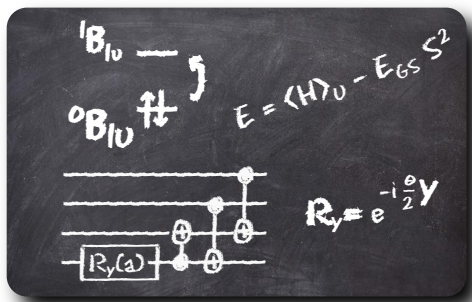 ¹B₁ᵤ
⁰B₁ᵤ
E = ⟨H⟩ᵤ - E_GS S²
R_y(a)
R_y = e^(-i θ/2 Y)